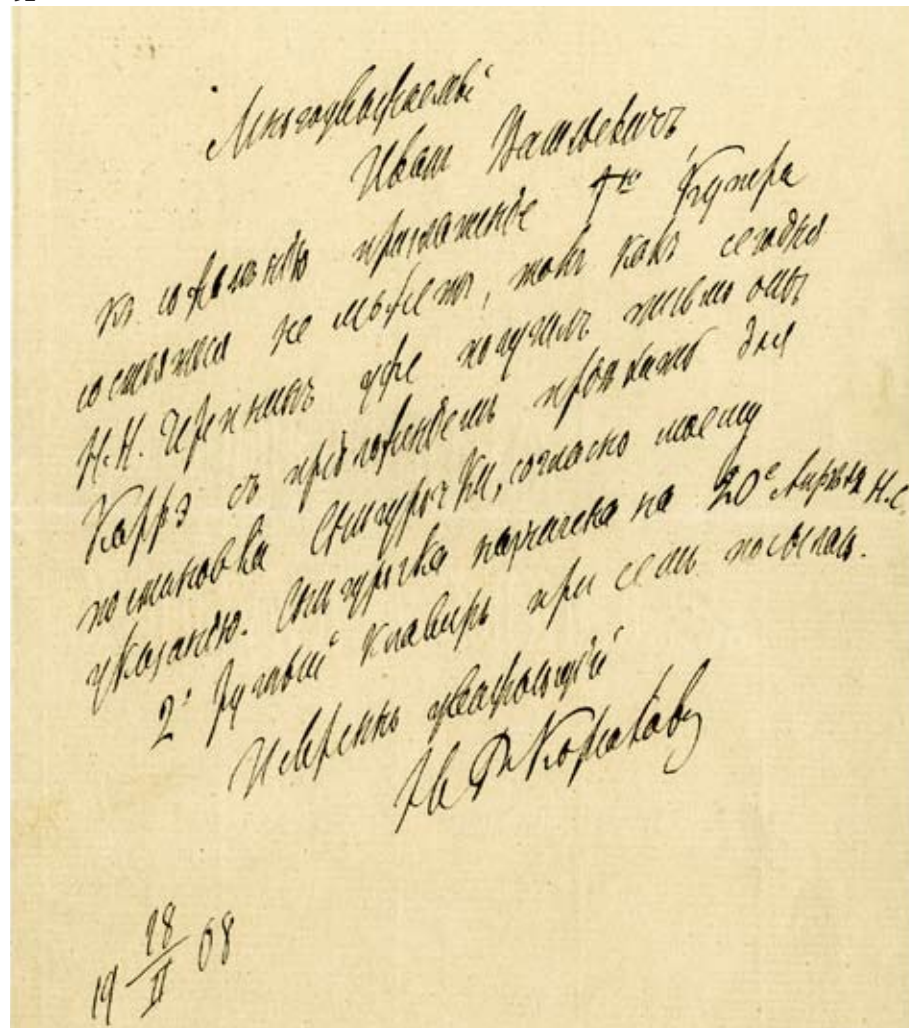 Многоуважаемый
Иванъ Васильевичъ,
къ сожалѣнію приглашеніе Г-на Купера
состояться не можетъ, такъ какъ сегодня
Н. Н. Черепнинъ уже получилъ письмо отъ
Каррэ съ предложеніемъ пріѣхать для
постановки Снѣгурочки, согласно моему
указанію. Снѣгурочка назначена на 20е Апрѣля н. с.
2й клавиръ при семъ посылаю.
Искренно уважающій
Н. Р.-Корсаковъ
19 18/II 08